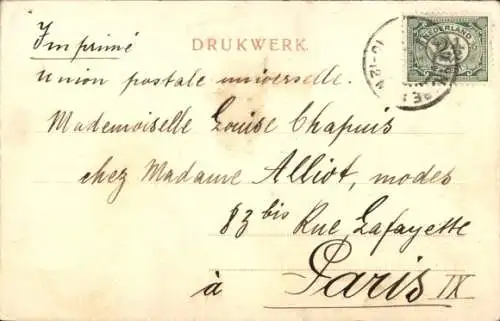 Imprimé
DRUKWERK.
NEDERLAND
2½
10-12 V
Union postale universelle.
Mademoiselle Louise Chapuis
chez Madame Alliot, modes
83 bis Rue Lafayette
à Paris IX